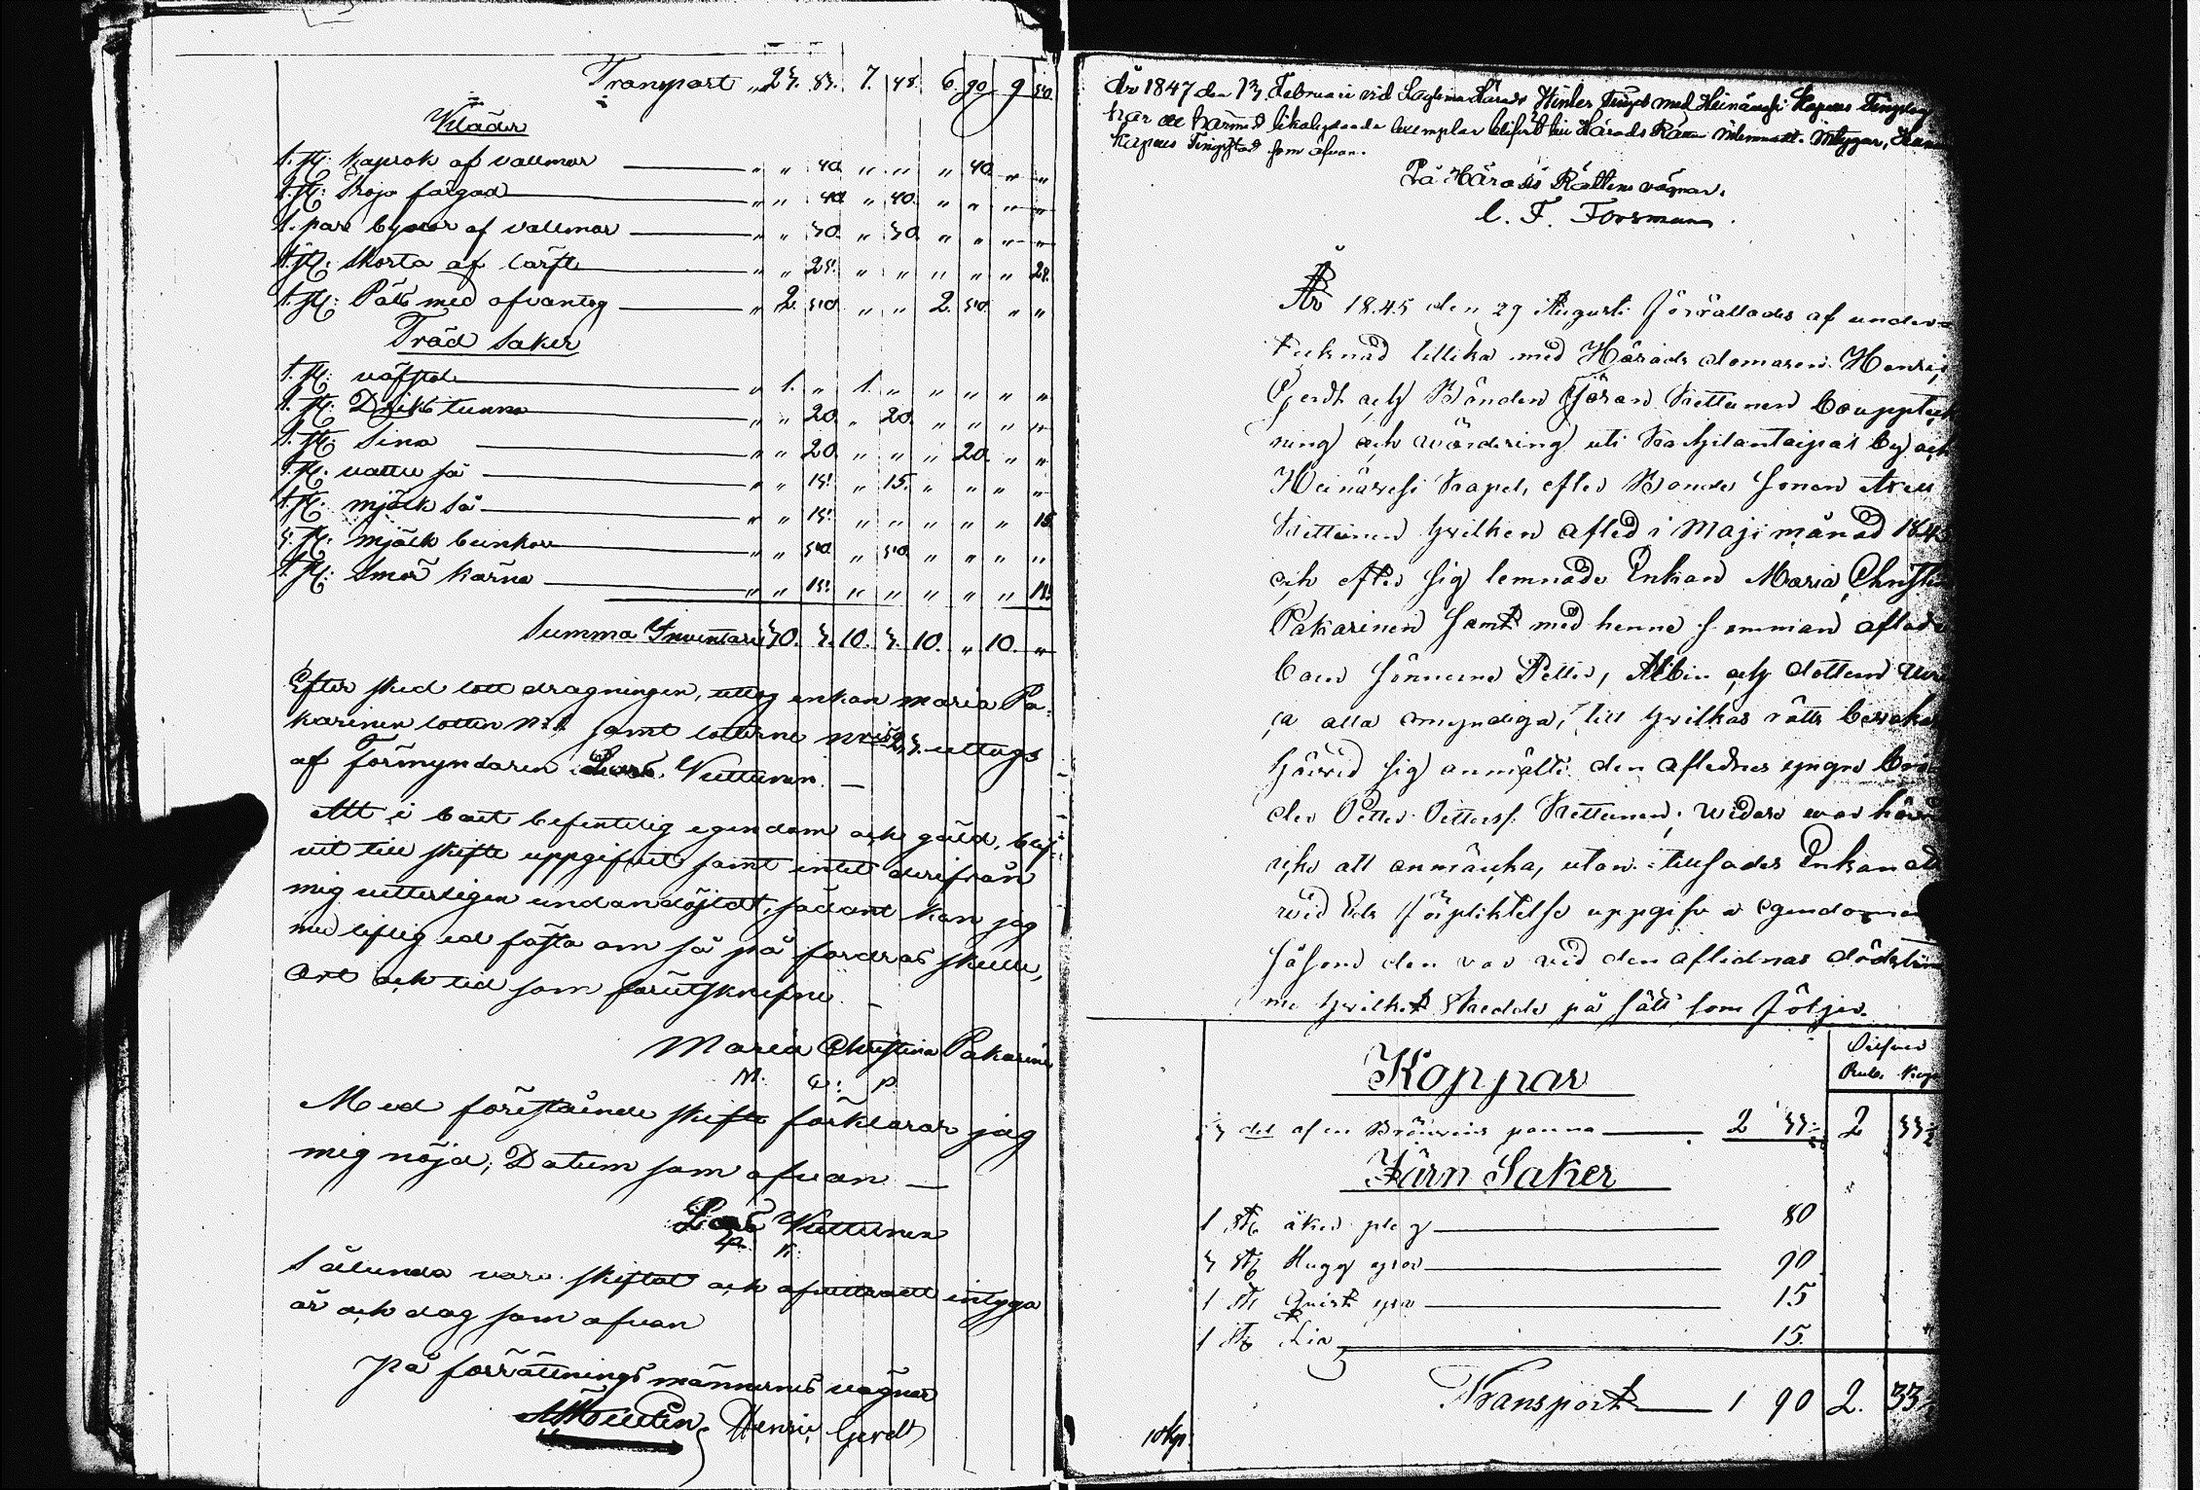 Transport „ 25. 83. 7. 48. 6. 90 9 50.
Kläder
1. st: kaprok af vallmar — „ „ 40. „ „ „ 40. „ „
1. st: Tröja färgad — „ „ 40 „ 40. „ „ „ „
1. par byxor af vallmar — „ „ 50. „ 50. „ „ „ „
1. st: Skorta af lärft — „ „ 25. „ „ „ „ „ 25.
1. st: Päls med ofvantyg — „ 2. 50. „ „ 2. 50. „ „
Träd Saker
1. st: väfstol — „ 1. „ 1. „ „ „ „ „
1. st: Dricks tunna — „ „ 20. „ 20. „ „ „ „
1. st: tina — „ „ 20. „ „ „ 20. „ „
1. st: vattu så — „ „ 15. „ 15. „ „ „ „
1. st: mjölk så — „ „ 15. „ „ „ „ „ 15
5. st: mjölk bunkar — „ „ 50. „ 50. „ „ „ „
1. st: Smör kärna — „ „ 15. „ „ „ „ „ 15.
Summa Inventarii 30. 5. 10. 5. 10. „ 10. „
Efter sked lott dragningen, uttog enkan Maria Pa-
karinen lotten N:1 samt lotterne N:ris 2, 3. uttogs
af Förmyndaren Lars Vuttunen. —
Att i boet befintelig egendom och gäld, blif-
vit till skifte uppgifvit samt intet derifrån
mig vetterligen undandöljdt, sådant kan jag
med liflig ed fästa om så på fordras skulle,
Ort och tid som förutskrifne —
Maria Christina Pakarinen
M. C: P.
Med föreståënde skifte förklarar jag
mig nöjd; Datum som ofvan —
Lars Vuttunen
Sålunda vara skiftat och afvittradt intyga
år och dag som ofvan
På förrättnings männernes vägnar
Henric Gerdt
År 1847 den 13 Februarii vid Laglima Härads Vinter Tinget med Heinävesi Kapens Tingslag
har ett härmed likalydande exemplar blifvit till Härads Rätten inlemnadt. Intygar,
Kapens Tingstad som ofvan.
På Härads Rättens vägnar.
C. F. Forsman.
År 1845 den 29 Augusti förrättades af under-
tecknad tillika med Härads domaren Henric
Gerdt och Bonden Göran Vettunen bouppteck
ning och wärdering uti by och
Heinävesi Kapel, efter Bonde Sonen
Vettunen hvilken afled i Maji månad 184
och efter sig lemnade Enkan Maria Christin
Pakarinen samt med henne samman aflade
barn sönerne Petter, Albin och dottern
ca alla omyndiga, till hvilkas rätts bevaka
härvid sig anmälte den aflednes yngre bro
der Petter Petterss. Vettunen; widare war härvid
icke att anmärka, utan tillsades Enkan att
wid Eds förpliktelse uppgifva egendomen
såsom den var vid den aflidnas dödstim
me hvilket skedde på sätt som följer.
Rub. Kop
Koppar
del af en Bränvins panna — 2 33 ½ 2 33 ½
Järn Saker
1 St åker plog — 80
3 St Hugg yxor — 90
1 St Quist yxa — 15
1 St Lia — 15.
Transport — 1 90 2. 33
10 kop.